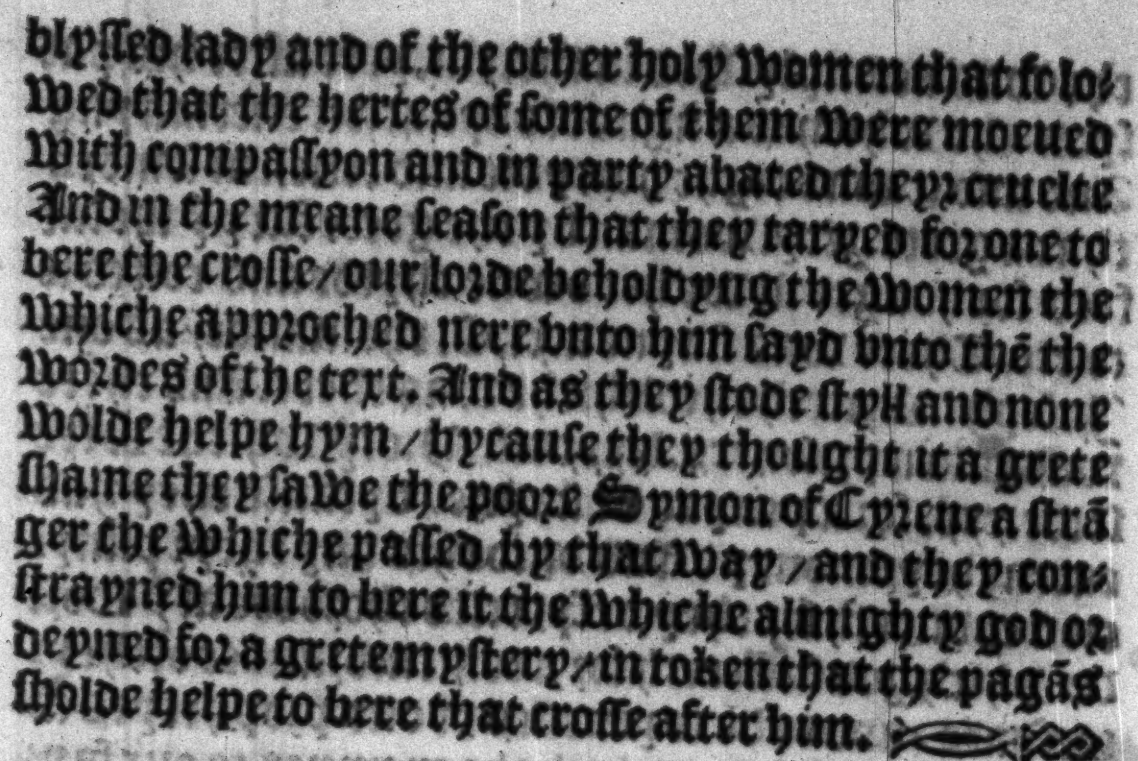 blyſſed lady and of the other holy women that folo⸗
wed that the hertes of ſome of them were moeued
with compaſſyon and in party abated theyꝛ cruelte
And in the meane ſeaſon that they taryed foꝛ one to
bere the croſſe / our loꝛde beholdyng the women the
whiche appꝛoched nere vnto him ſayd vnto thē the
woꝛdes of the text. And as they ſtode ſtyll and none
wolde helpe hym / bycauſe they thought it a grete
ſhame they ſawe the pooꝛe Symon of Cyꝛene a ſtrā
ger the whiche paſſed by that way / and they con⸗
ſtrayned him to bere it the whiche almighty god oꝛ
deyned foꝛ a grete myſtery / in token that the pagās
ſholde helpe to bere that croſſe after him.